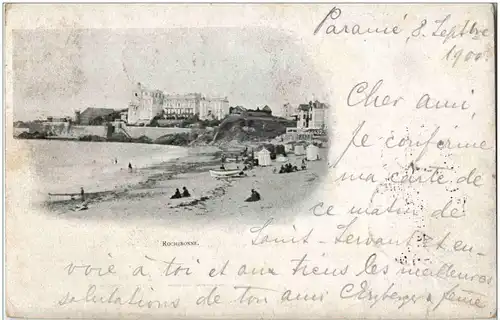 Paramé, 8 Septbre
1900.
Cher ami,
Je confirme
ma carte de
ce matin de
Saint-Servant et en-
voie à toi et aux tiens les meilleures
salutations de ton ami
ROCHEBONNE.